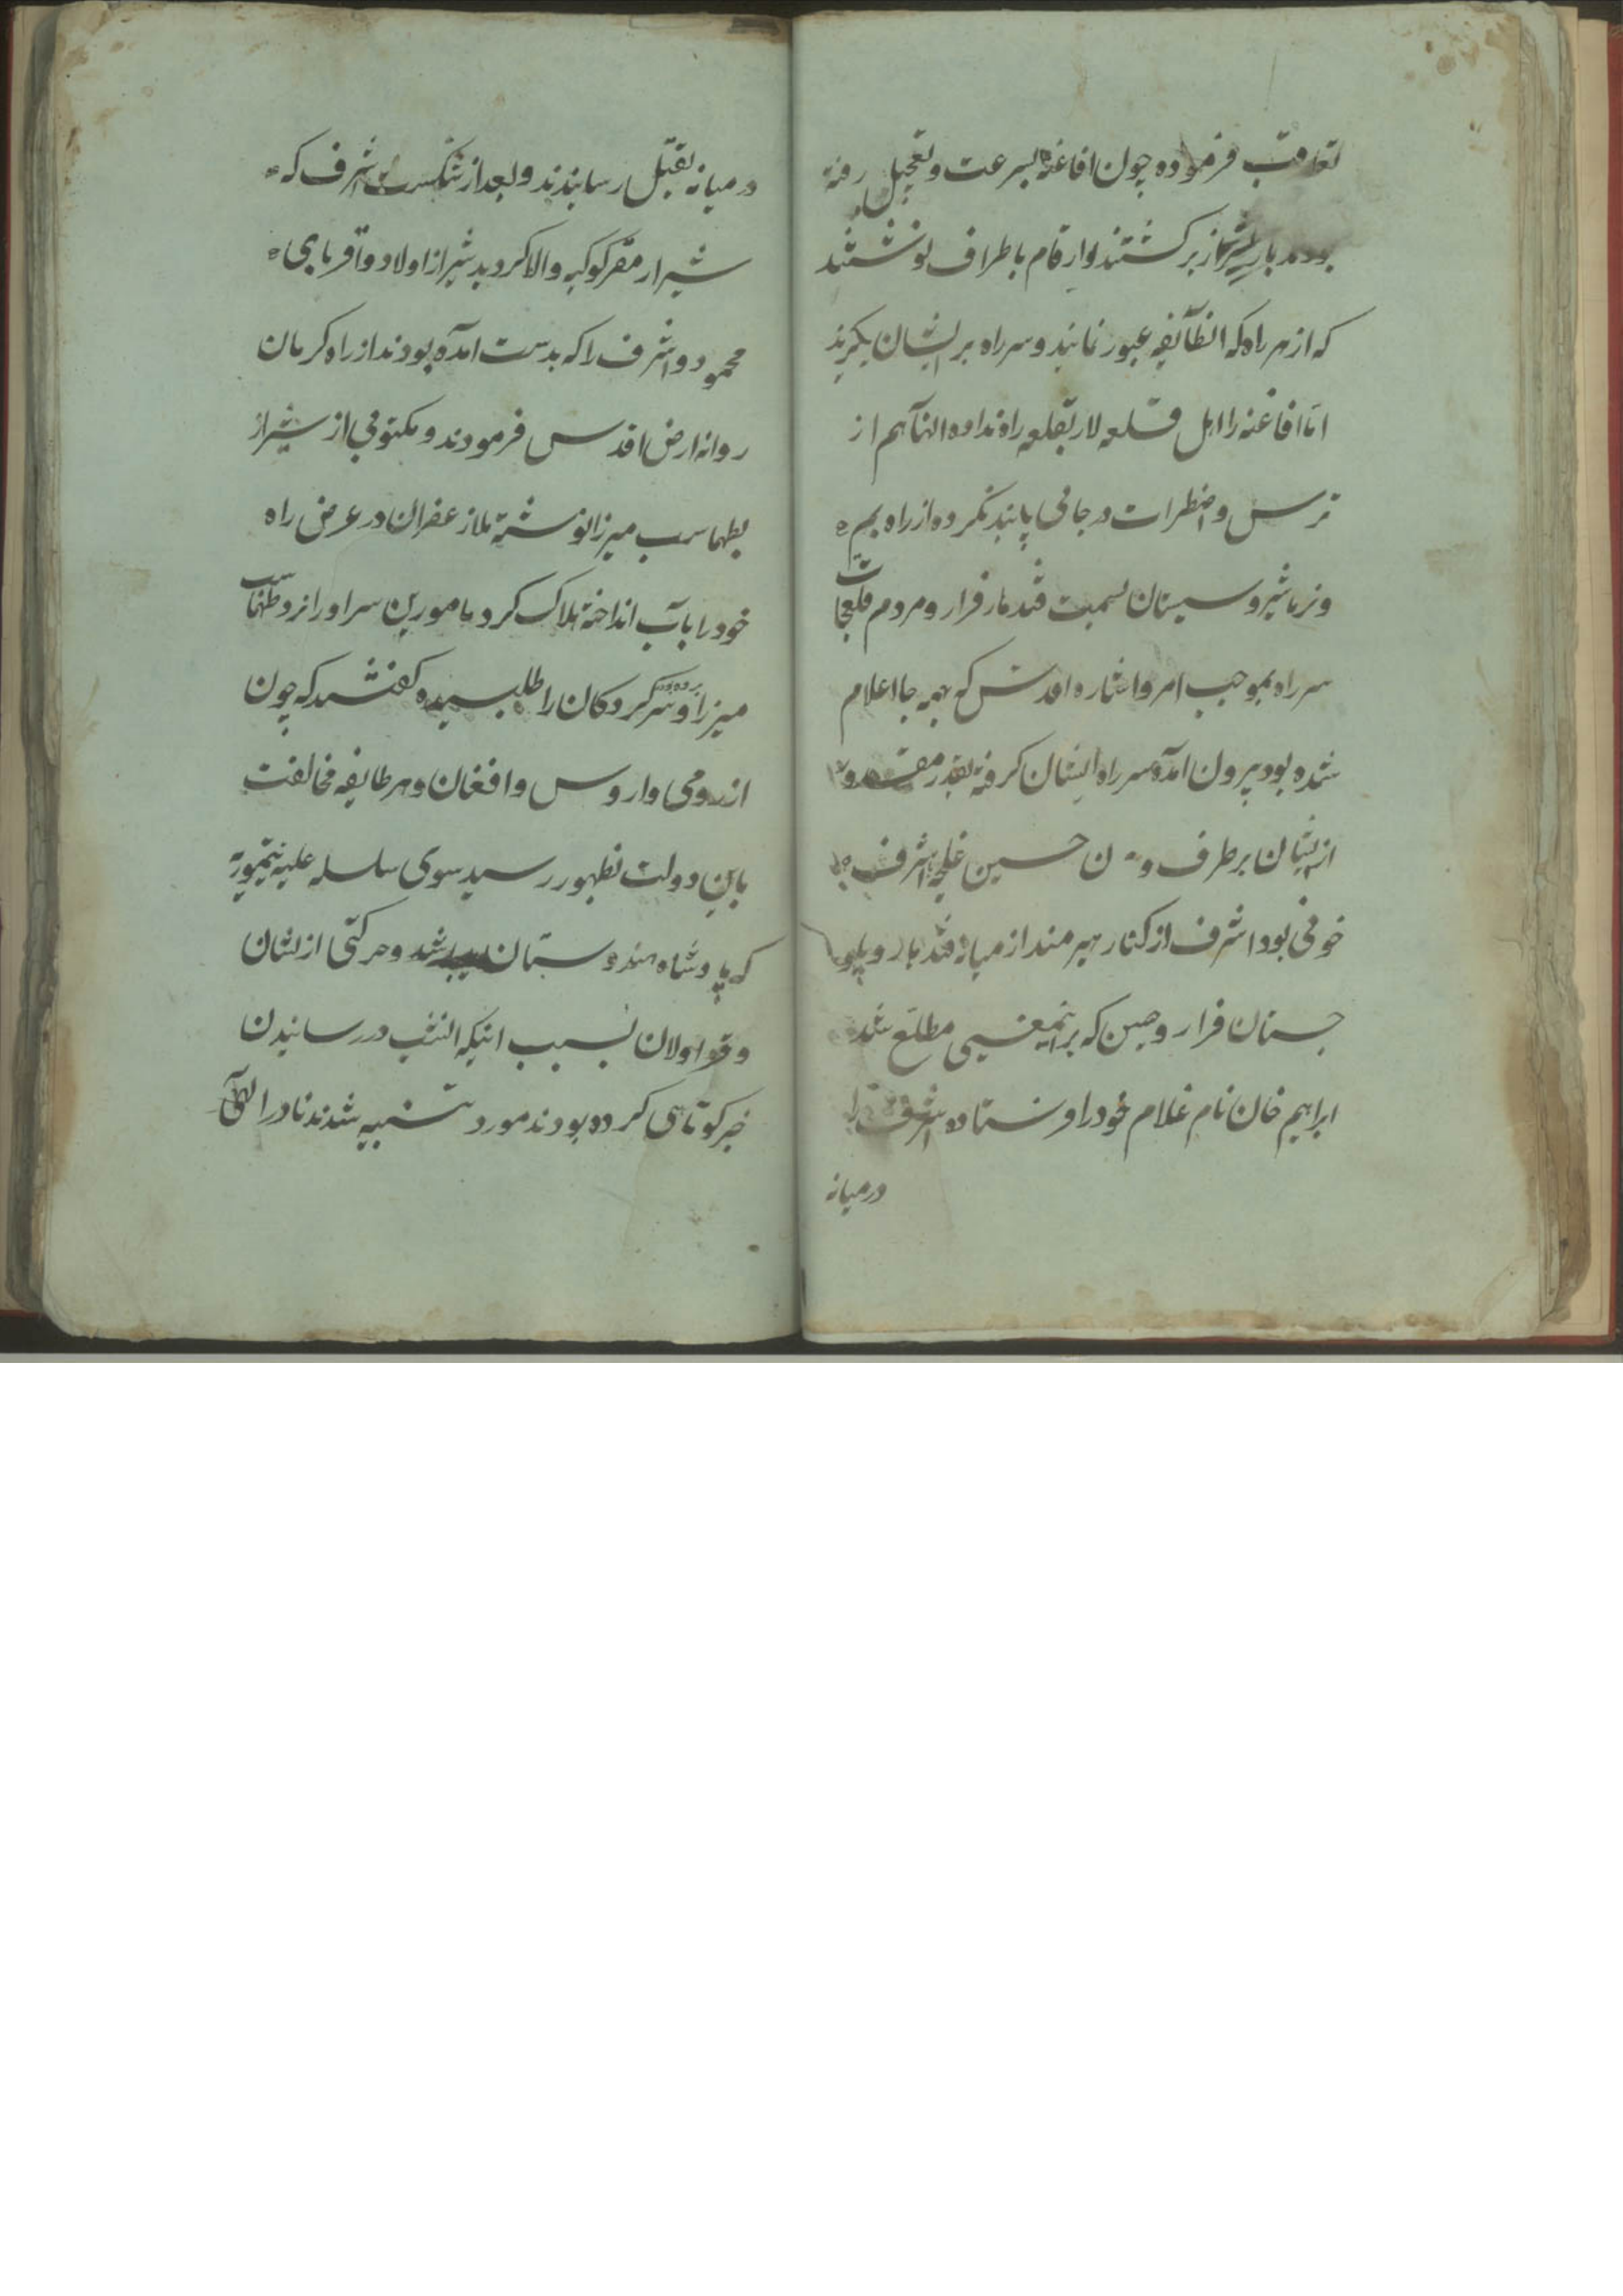 تعاقب فرموده چون افاغنه بسرعت و تعجیل رفته
بودند باز بشیراز برکشتند و ارقام باطراف نوشتند
که از هر راه که انطآیفه عبور نمایند و سر راه بر ایشان بکیرند
اما افاغنه را اهل قلعه لار بقلعه راه نداده انهآ هم از
ترس و اضطرات در جائی پابند نکردہ از راه بم
و نرماشیر و سیستان بسمت قندهار فرار و مردم قلعجات
سر راه بموجب امر و اشاره اقدس که بهمه جا اعلام
شده بود بیرون آمده سر راه ایشان کرفته بقدر مقدور
از ایشان برطرف و حسین غلجه با اشرف
خونی بود اشرف از کنار هیرمند از میانه قندهار و بلو
جستان فرار و حسین که براینمعنی مطلع شد
ابراهیم خان نام غلام خود را فرستاده اشرف را
درمیانه
درمیانه بقتل رسانیدند و بعد از شکست اشرف که
شیراز مقر کوکبه والا کردید شیراز اولاد و اقربای
محمود و اشرف را که بدست امده بودند از راه کرمان
روانه ارض اقدس فرمودند و مکتوبی از شیراز
بطهماسب میرزا نوشته ملا زعفران در عرض راه
خود را بآب انداخته هلاک کرد مامورین سر او را نزد طهماسب
میرزا برده و سرکردکان را طلبیده کفتند که چون
از رومی و اروس و افغان و هر طایفه مخالفت
باین دولت بظهور رسید سوی سلسله علیه تیموریه
که پادشاه هندوستان باشد و حرکتی از نشان
و قراولان بسبب اینکه انشب در رسانیدن
خبر کوتاهی کرده بودند مورد تنبیه شدند نادر